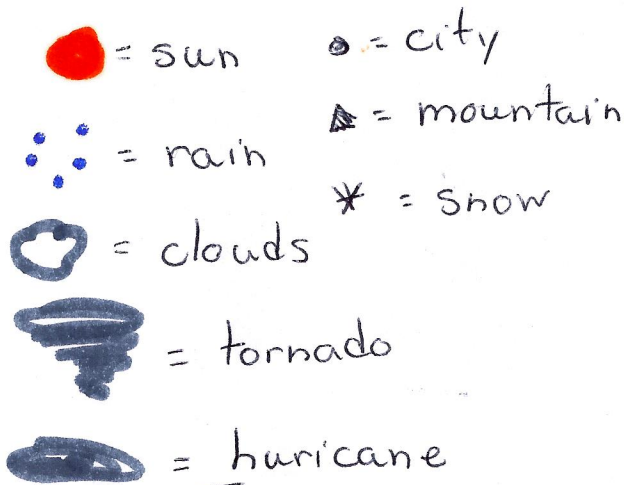 = sun
= rain
= clouds
= tornado
= huricane
= city
= mountain
= snow